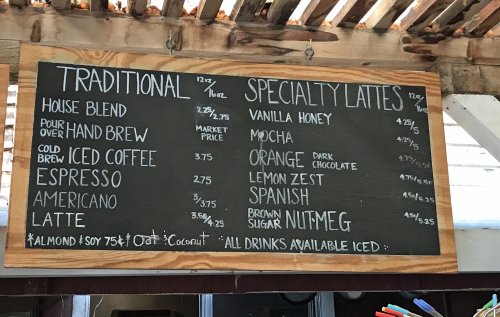 TRADITIONAL 12oz/16oz
HOUSE BLEND 2.25/2.75
POUR OVER HAND BREW MARKET PRICE
COLD BREW ICED COFFEE 3.75
ESPRESSO 2.75
AMERICANO 3/3.75
LATTE 3.50/4.25
SPECIALTY LATTES 12oz/16oz
VANILLA HONEY 4.25/5
MOCHA 4.25/5
ORANGE DARK CHOCOLATE 4.75/5.50
LEMON ZEST 4.75/5.50
SPANISH 4.50/5.25
BROWN SUGAR NUTMEG 4.50/5.25
*ALMOND & SOY 75¢* Oat & Coconut ALL DRINKS AVAILABLE ICED